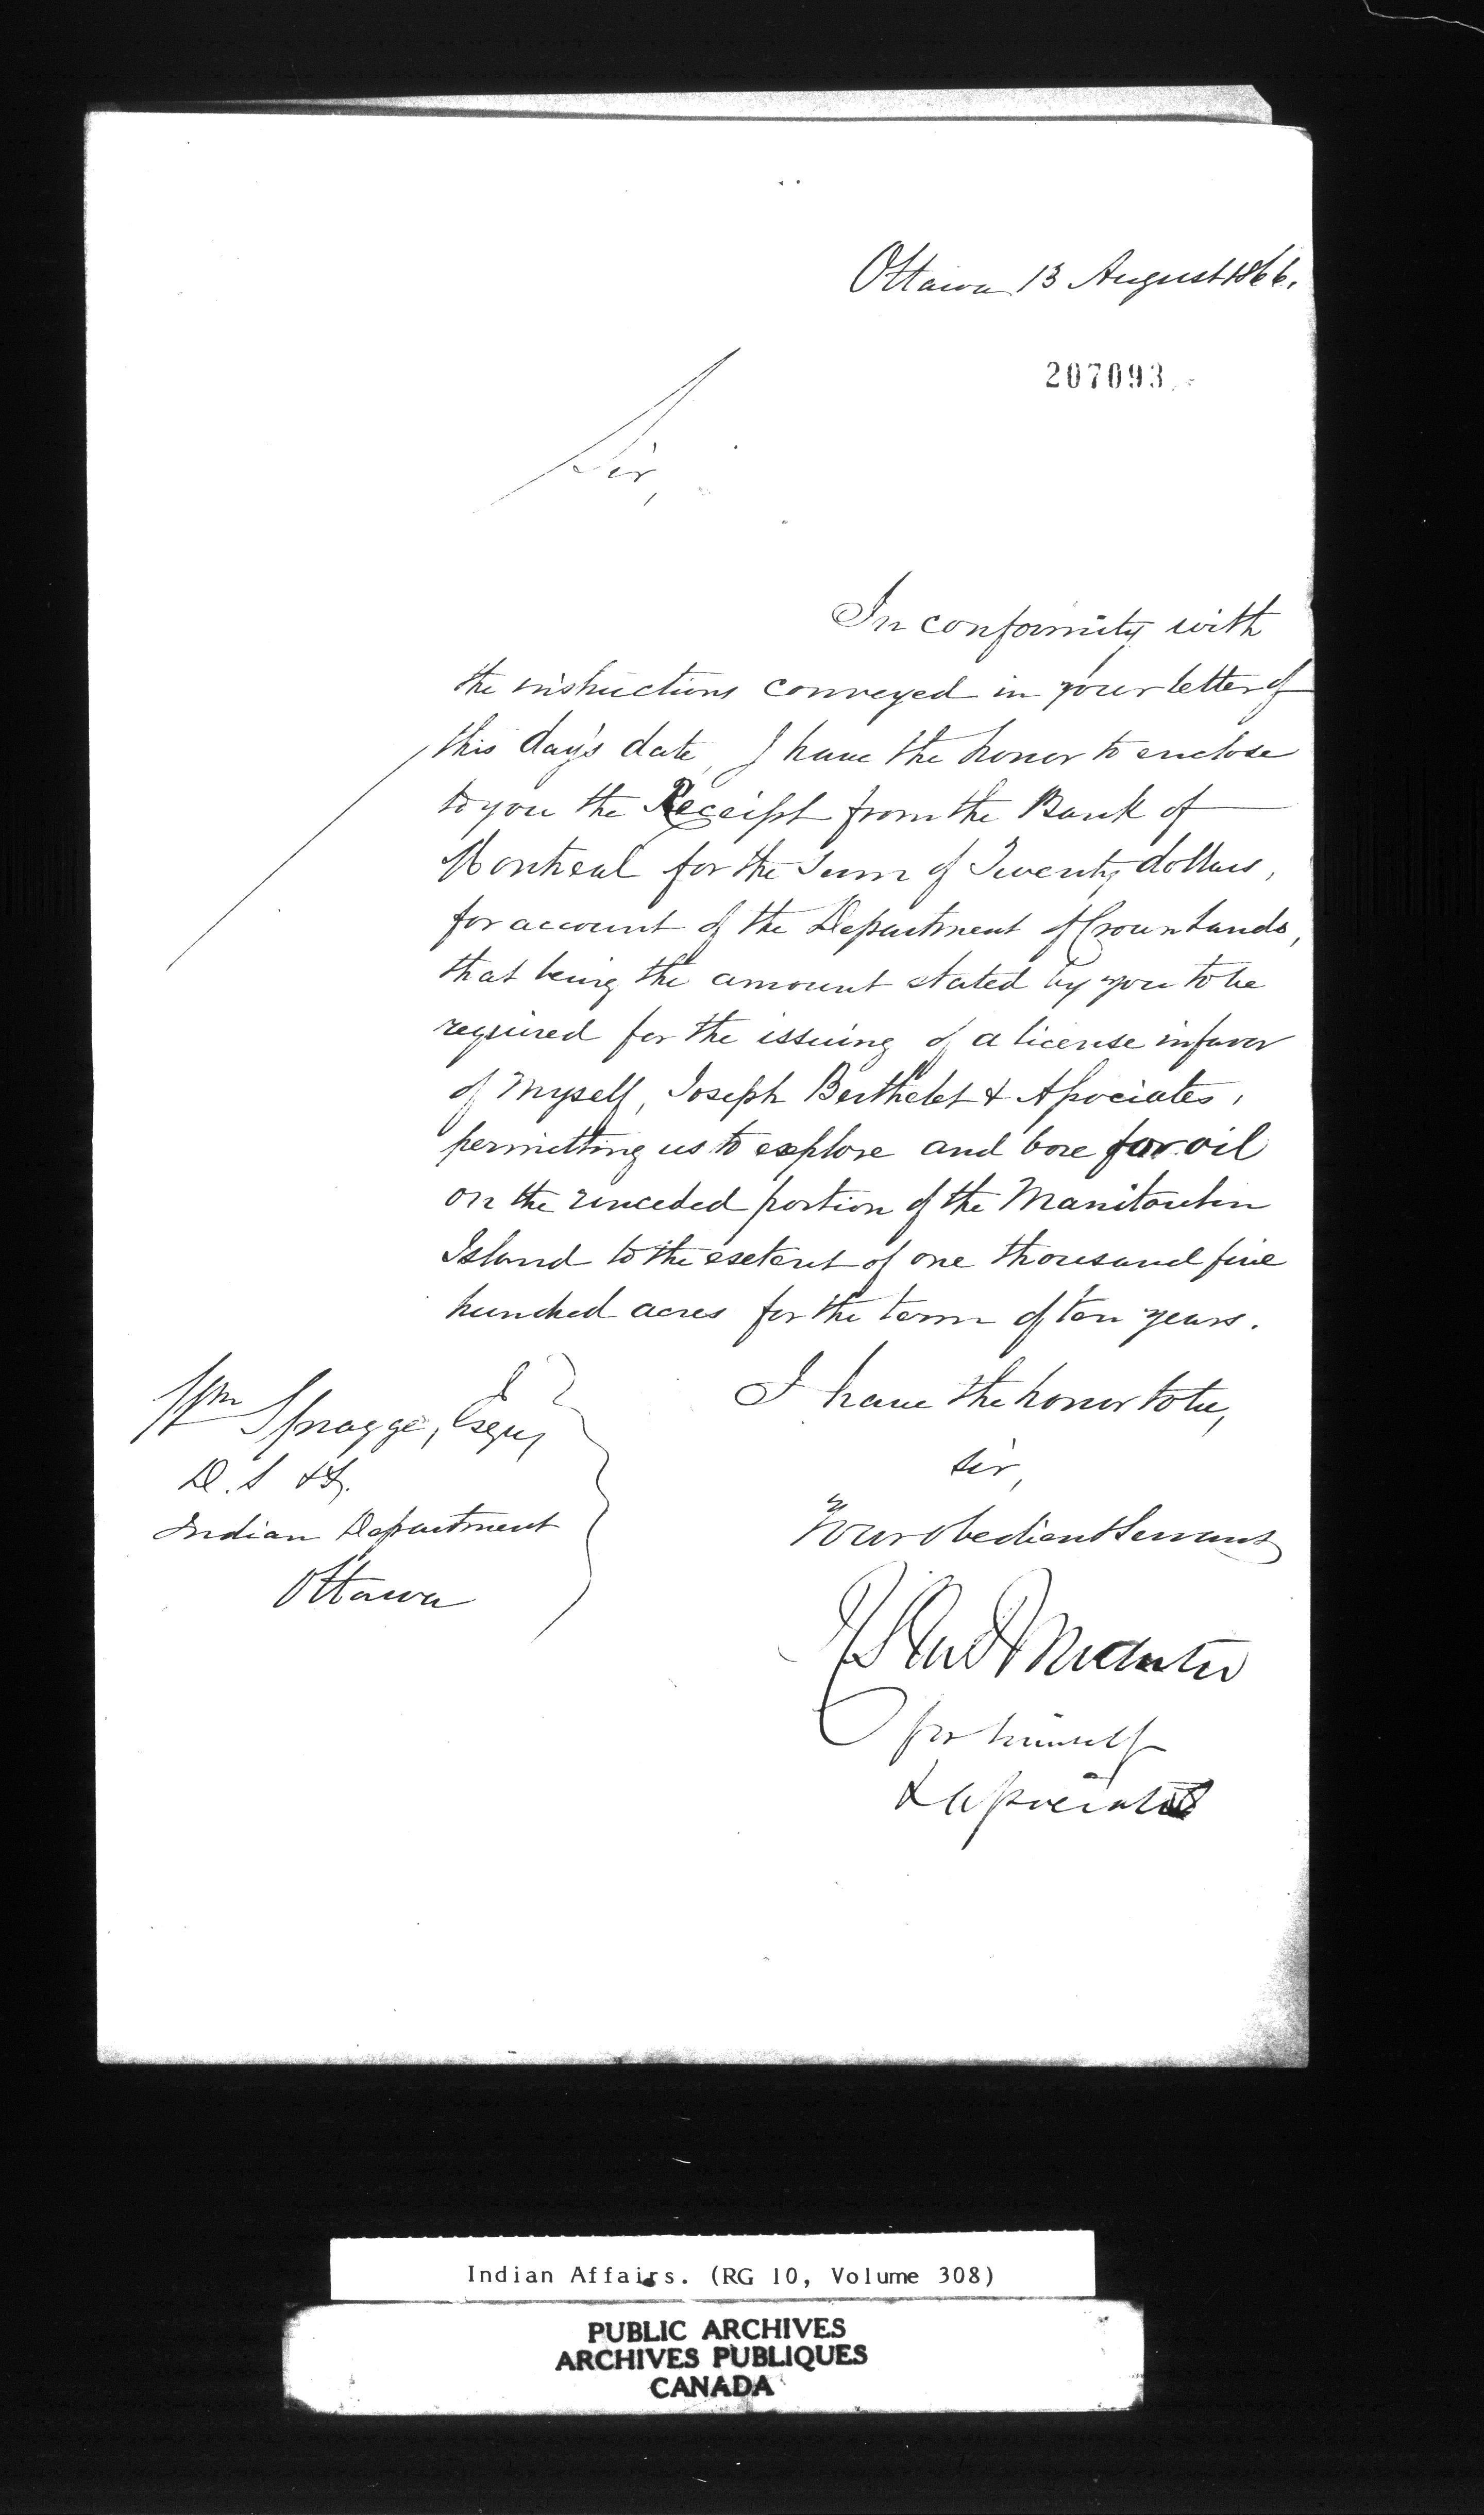 Ottawa 13 August 1866.
207093
Sir,
In conformity with
the instructions conveyed in your letter of
this day's date, I have the honor to enclose
to you the Receipt from the Bank of
Montreal for the Sum of Twenty dollars,
for account of the Department of Crown Lands,
that being the amount stated by you to be
required for the issuing of a license in favor
of Myself, Joseph Berthelet & Associates,
permitting us to explore and bore for oil
on the unceded portion of the Manitoulin
Island to the extent of one thousand five
hundred acres for the term of ten years.
I have the honor to be,
Sir,
Your obedient Servant
for himself
& Associates
Wm Spragge, Esqre,
D. S
Indian Department
Ottawa
Indian Affairs. (RG 10, Volume 308)
PUBLIC ARCHIVES
ARCHIVES PUBLIQUES
CANADA